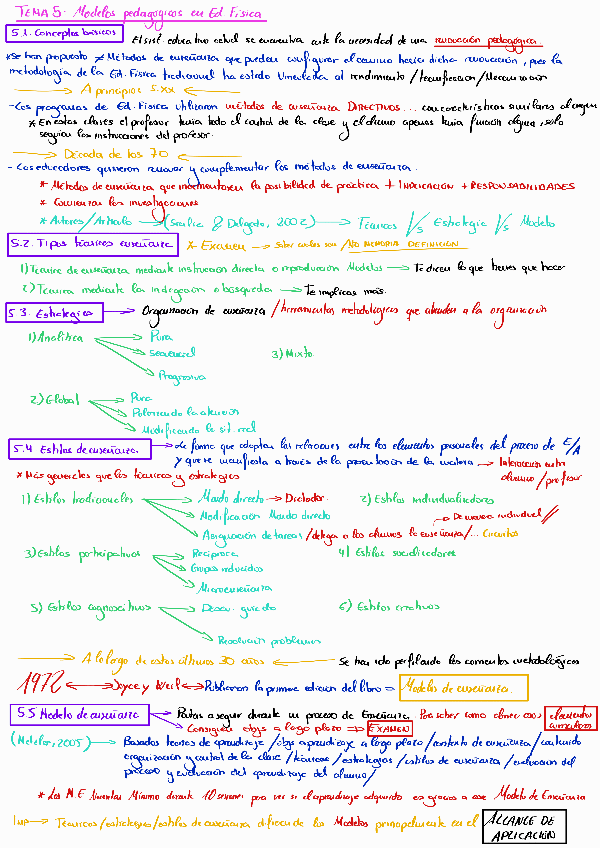 TEMA 5: Modelos pedagógicos en Ed Física
5.1. Conceptos básicos El sist. educativo actual se encuentra ante la necesidad de una renovación pedagógica
* Se han propuesto ≠ Métodos de enseñanza que puedan configurar el camino hacia dicha renovación, pues la
metodología de la Ed. Física tradicional ha estado vinculada al rendimiento / tecnificación / Mecanización
A principios S.XX
- Los programas de Ed. Física utilizaron métodos de enseñanza DIRECTIVOS... con características similares al origen
* En estas clases el profesor tenía todo el control de la clave y el alumno apenas tenía función alguna, solo
seguían las instrucciones del profesor.
Década de los 70
- Los educadores quisieron renovar y complementar los métodos de enseñanza.
* Métodos de enseñanza que incrementasen la posibilidad de práctica + IMPLICACIÓN + RESPONSABILIDADES
* Comienzan las investigaciones
* Autores / Artículo → (Sicilia & Delgado, 2002) → Técnicas V/s Estrategia V/s Modelo
5.2. Tipos técnicas enseñanza * Examen → Saber cuales son / NO MEMORIA DEFINICIÓN
1) Técnica de enseñanza mediante instrucción directa o reproducción Modelos → Te dicen lo que tienes que hacer
2) Técnica mediante la indagación o búsqueda → Te implicas más.
5.3. Estrategias → Organización de enseñanza / herramientas metodológicas que atienden a la organización
1) Analítica → Pura
→ Secuencial 3) Mixto
→ Progresiva
2) Global → Pura
→ Polarizando la atención
→ Modificando la sit. real
5.4 Estilos de enseñanza → La forma que adoptan las relaciones entre los elementos personales del proceso de E/A
y que se manifiesta a través de la presentación de la materia → Interacción entre
alumno / profesor
* Más generales que las técnicas y estrategias
1) Estilos tradicionales → Mando directo → Dictador 2) Estilos individualizadores
→ Modificación Mando directo → De manera individual
→ Asignación de tareas / delega a los alumnos la enseñanza /... Circuitos
3) Estilos participativos → Recíproca 4) Estilos socializadores
→ Grupos reducidos
→ Microenseñanza
5) Estilos cognoscitivos → Descu. guiado 6) Estilos creativos
→ Resolución problemas
A lo largo de estos últimos 30 años Se han ido perfilando los conceptos metodológicos
1972 ↔ Joyce y Weil ↔ Publicaron la primera edición del libro = Modelos de enseñanza.
5.5 Modelo de enseñanza → Pautas a seguir durante un proceso de Enseñanza. Para saber como obtener esos elementos curriculares
→ Conseguir objs a largo plazo ⇒ EXAMEN
(Metzler, 2005) → Basados teorías de aprendizaje / objs aprendizaje a largo plazo / contexto de enseñanza / contenido
organización y control de la clase / técnicas / estrategias / estilos de enseñanza / evaluación del
proceso y evaluación del aprendizaje del alumno /
* Los M.E Necesitan Mínimo durante 10 semanas para ver si el aprendizaje adquirido es gracias a ese Modelo de Enseñanza
IMP → Técnicas / estrategias / estilos de enseñanza difieren de los Modelos principalmente en el ALCANCE DE APLICACIÓN